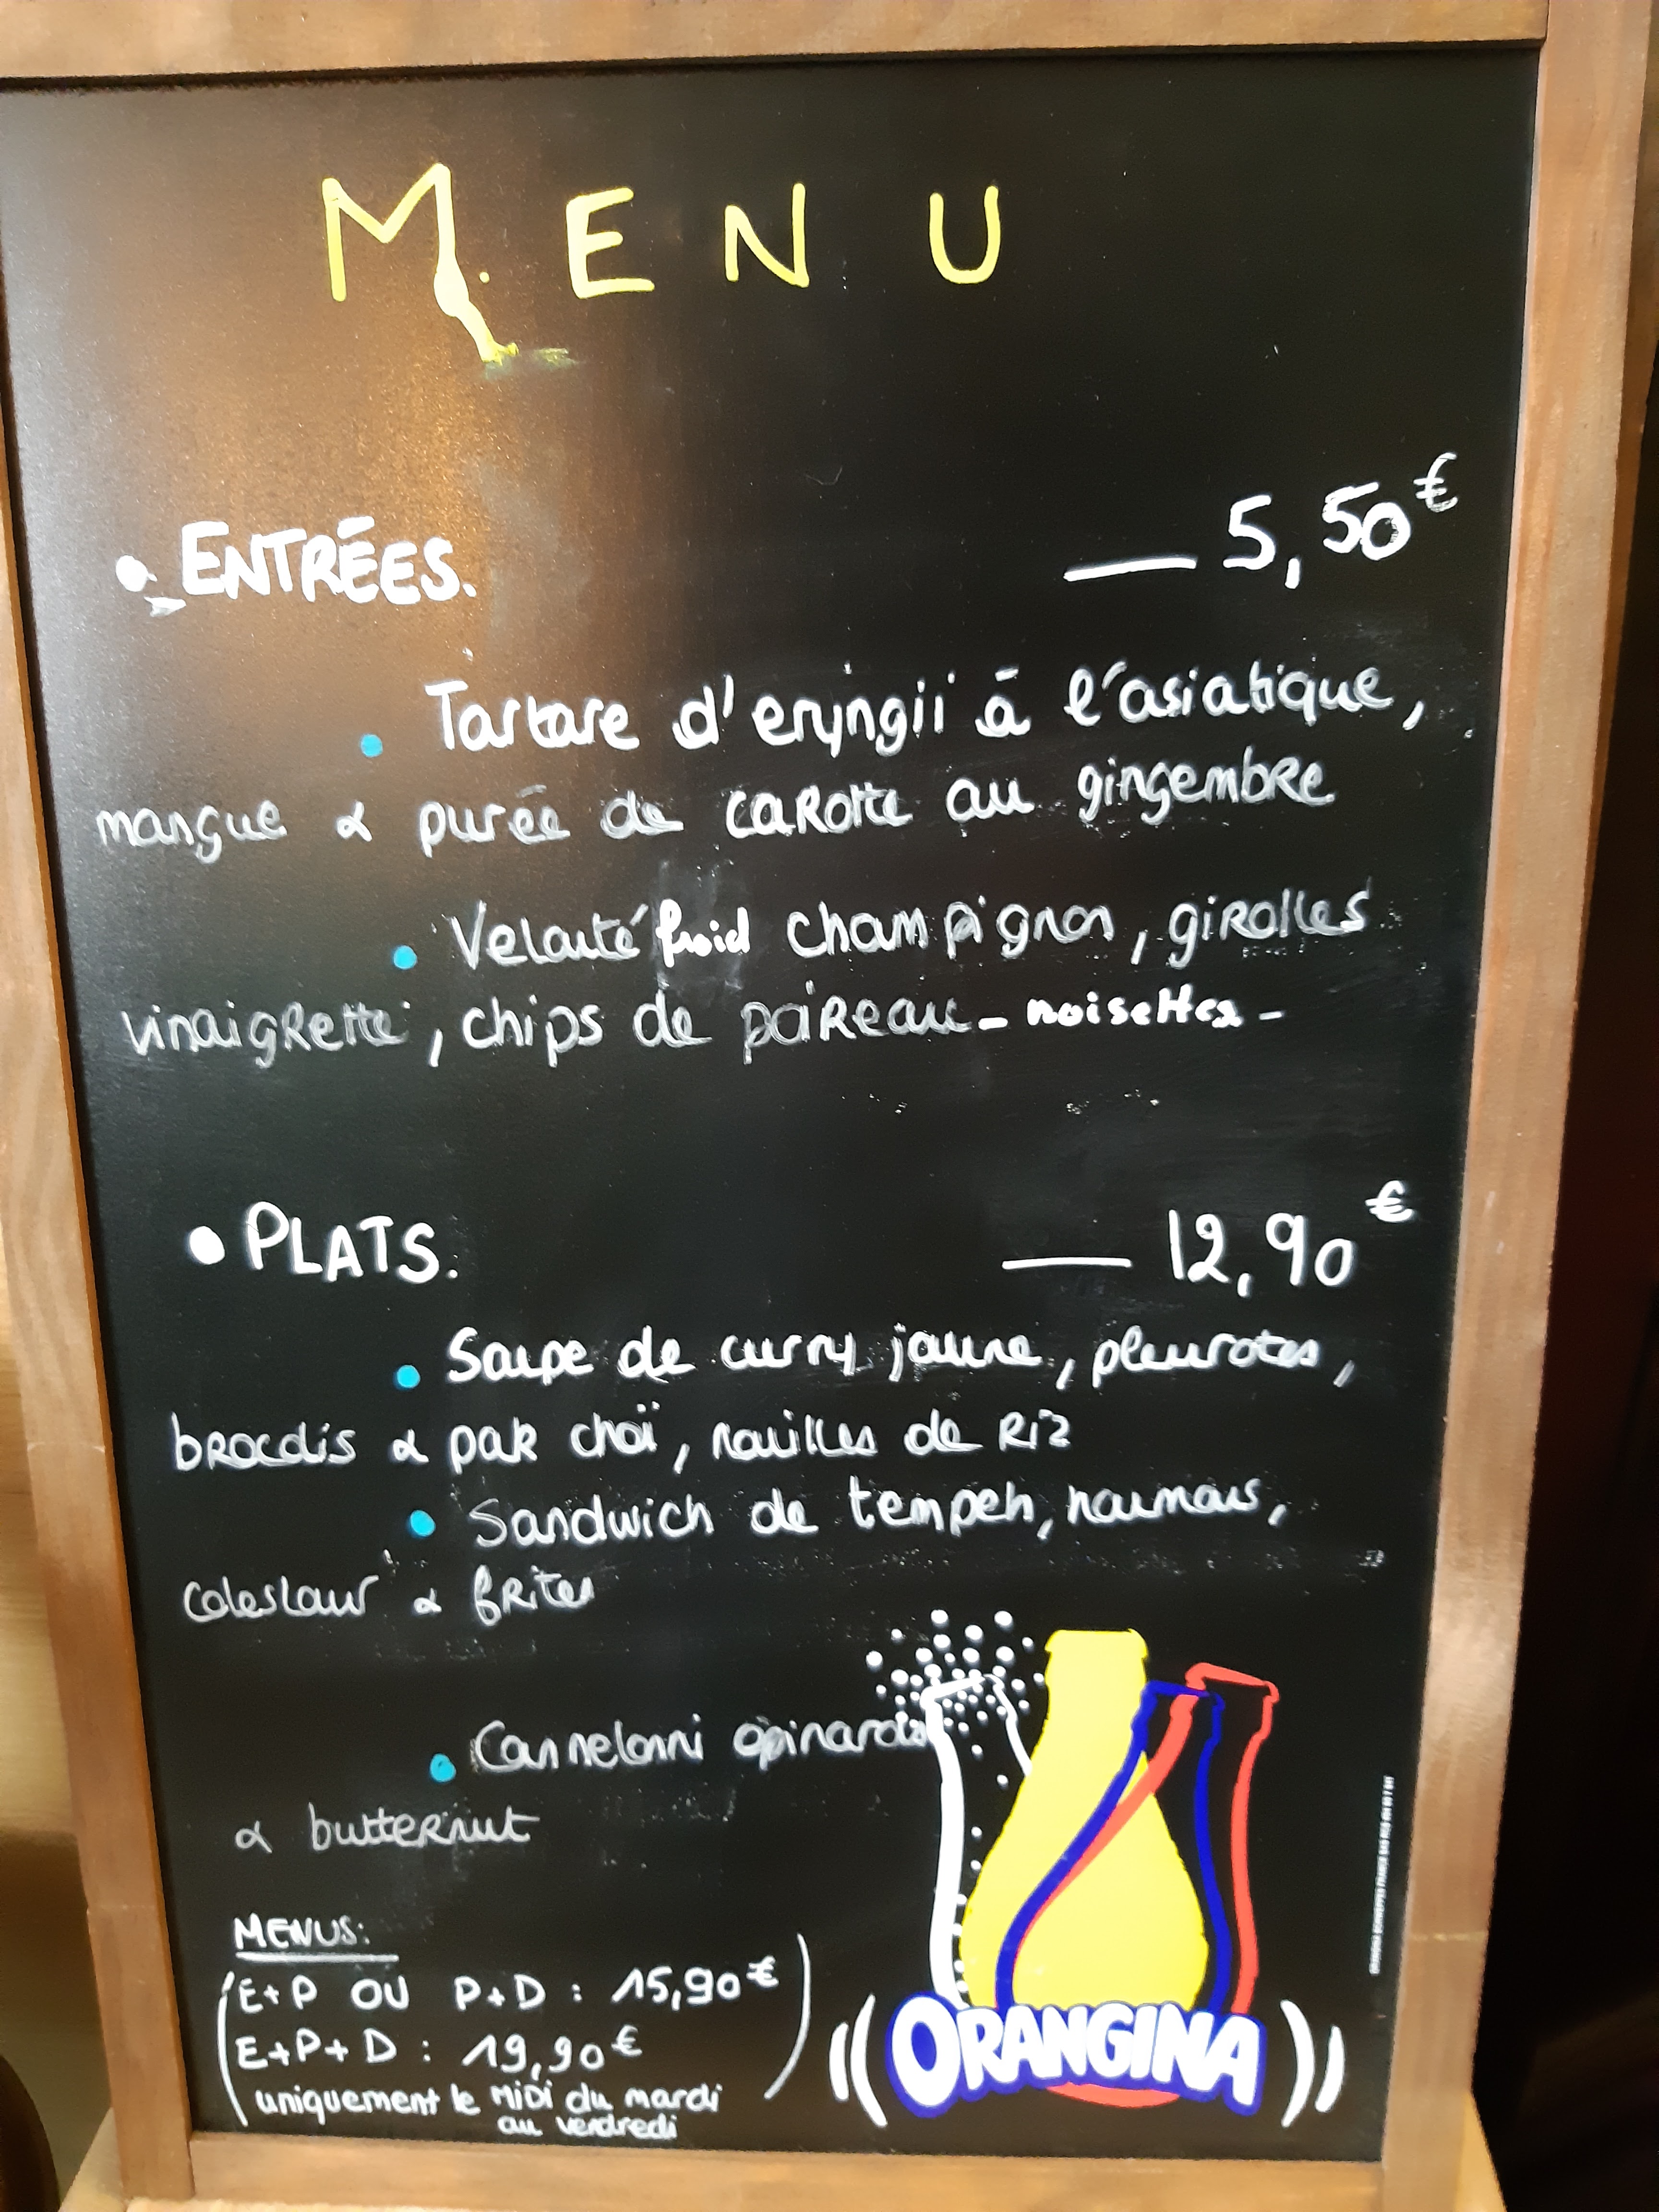 MENU
• ENTRÉES. — 5,50€
• Tartare d'eryngii à l'asiatique,
mangue & purée de carotte au gingembre
• Velouté froid champignon, girolles
vinaigrette, chips de poireau - noisettes -
• PLATS. — 12,90€
• Soupe de curry jaune, pleurotes,
brocolis & pak choï, nouilles de riz
• Sandwich de tempeh, houmous,
coleslaw & frites
• Cannelonni épinards
& butternut
MENUS:
E+P OU P+D : 15,90€
E+P+D : 19,90€
uniquement le MiDi du mardi
au vendredi
ORANGINA